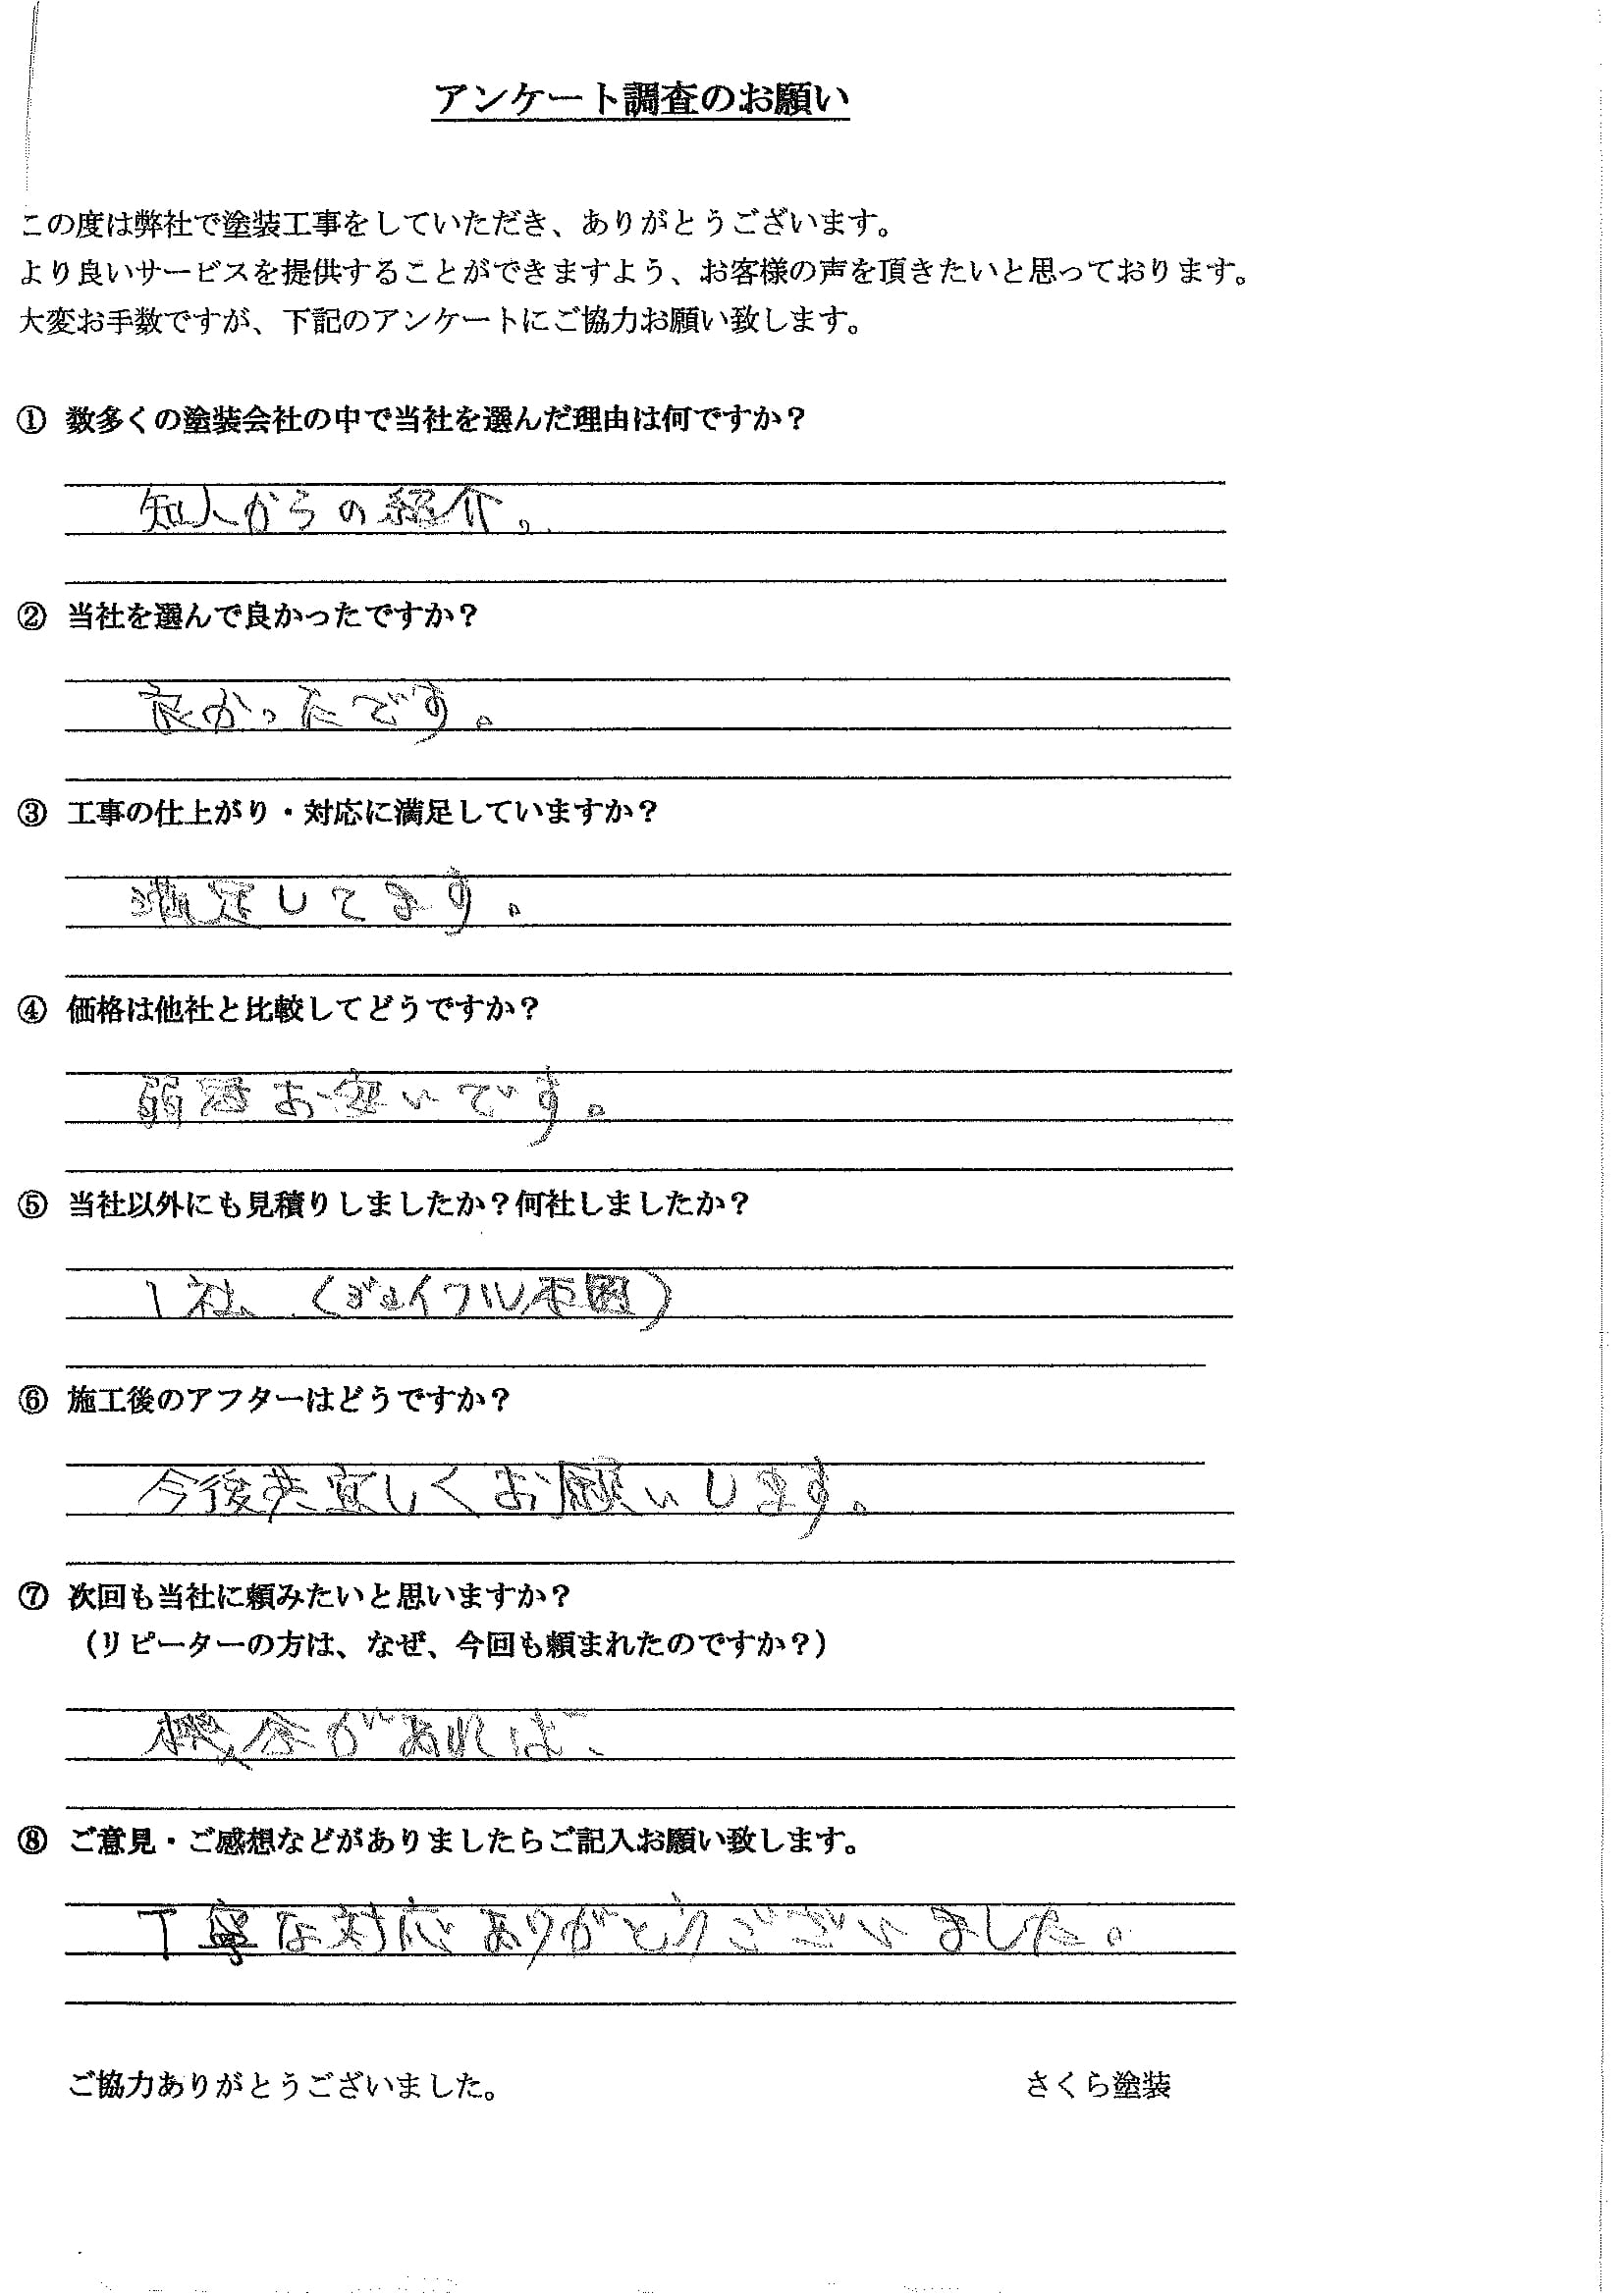 アンケート調査のお願い
この度は弊社で塗装工事をしていただき、ありがとうございます。
より良いサービスを提供することができますよう、お客様の声を頂きたいと思っております。
大変お手数ですが、下記のアンケートにご協力お願い致します。
① 数多くの塗装会社の中で当社を選んだ理由は何ですか？
知人からの紹介。
② 当社を選んで良かったですか？
良かったです。
③ 工事の仕上がり・対応に満足していますか？
満足してます。
④ 価格は他社と比較してどうですか？
お安いです。
⑤ 当社以外にも見積りしましたか？何社しましたか？
1社、(ジョイフル本田)
⑥ 施工後のアフターはどうですか？
今後共宜しくお願いします。
⑦ 次回も当社に頼みたいと思いますか？
（リピーターの方は、なぜ、今回も頼まれたのですか？）
機会があれば、
⑧ ご意見・ご感想などがありましたらご記入お願い致します。
丁寧な対応ありがとうございました。
ご協力ありがとうございました。 さくら塗装